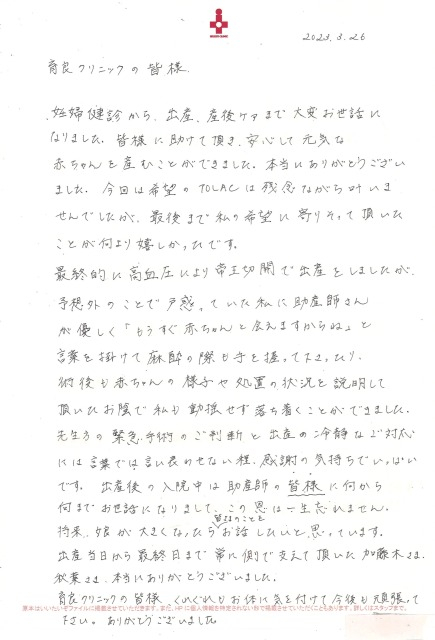 2023.3.26
育良クリニックの皆様
妊婦健診から、出産、産後ケアまで大変お世話に
なりました。皆様に助けて頂き、安心して元気な
赤ちゃんを産むことができました。本当にありがとうござい
ました。今回は希望のTOLACは残念ながら叶いま
せんでしたが、最後まで私の希望に寄りそって頂いた
ことが何より嬉しかったです。
最終的に高血圧により帝王切開で出産をしましたが、
予想外のことで戸惑っていた私に助産師さん
が優しく「もうすぐ赤ちゃんと会えますからね」と
言葉を掛けて麻酔の際も手を握って下さったり、
術後も赤ちゃんの様子や処置の状況を説明して
頂いたお陰で私も動揺せず落ち着くことができました。
先生方の緊急手術のご判断と出産の冷静なご対応
には言葉では言い表わせない程、感謝の気持ちでいっぱい
です。出産後の入院中は助産師の皆様に何から
何までお世話になりまして、この恩は一生忘れません。
皆様のことを
将来、娘が大きくなったらお話したいと思っています。
出産当日から最終日まで常に側で支えて頂いた加藤木さま、
秋葉さま、本当にありがとうございました。
育良クリニックの皆様、くれぐれもお体に気を付けて今後も頑張って
原本はいただいぞファイルに掲載させていただきます。また、HPに個人情報を特定されない形で掲載させていただくこともあります。詳しくはスタッフまで。
下さい。ありがとうございました